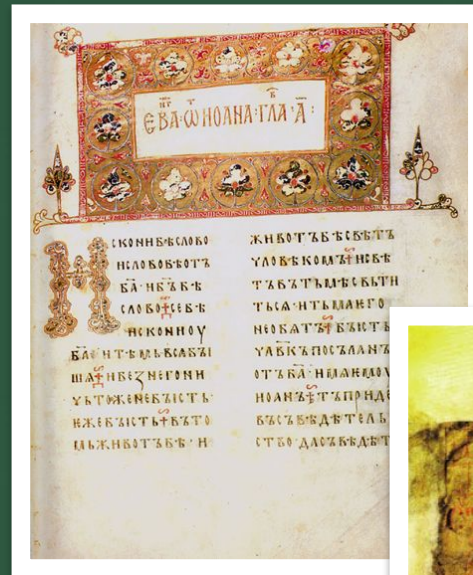 ЕВА·ѾИОАНА·ГЛА·А҃:
ИСКОНИБѢСЛОВО
ИСЛОВОБѢОТЪ
БА҃·ИБЪ҃БѢ
СЛОВО·СЕБѢ
ИСКОНИОУ
БА҃·ИТѢМЬВСѦБЫ
ШѦ·ИБЕЗНЕГОНИ
ЧЬТОЖЕНЕБЫСТЬ·
ЕЖЕБЫСТЬ·ВЪТО
МЬЖИВОТЪБѢ·И
ЖИВОТЪБѢСВѢТЪ
ЧЛОВѢКОМЪ·ИСВѢ
ТЪВЪТЬМѢСВЬТИ
ТЬСѦ·ИТЬМАЕГО
НЕОБѦТЪ·БЫСТЬ
ЧЛВ҃КЪПОСЪЛАНЪ
ОТЪБА҃·ИМѦЕМОУ
ИОАНЪ·ТЪПРИДЕ
ВЪСЪВѢДѢТЕЛЬ
СТВО·ДАСЪВѢДѢТ